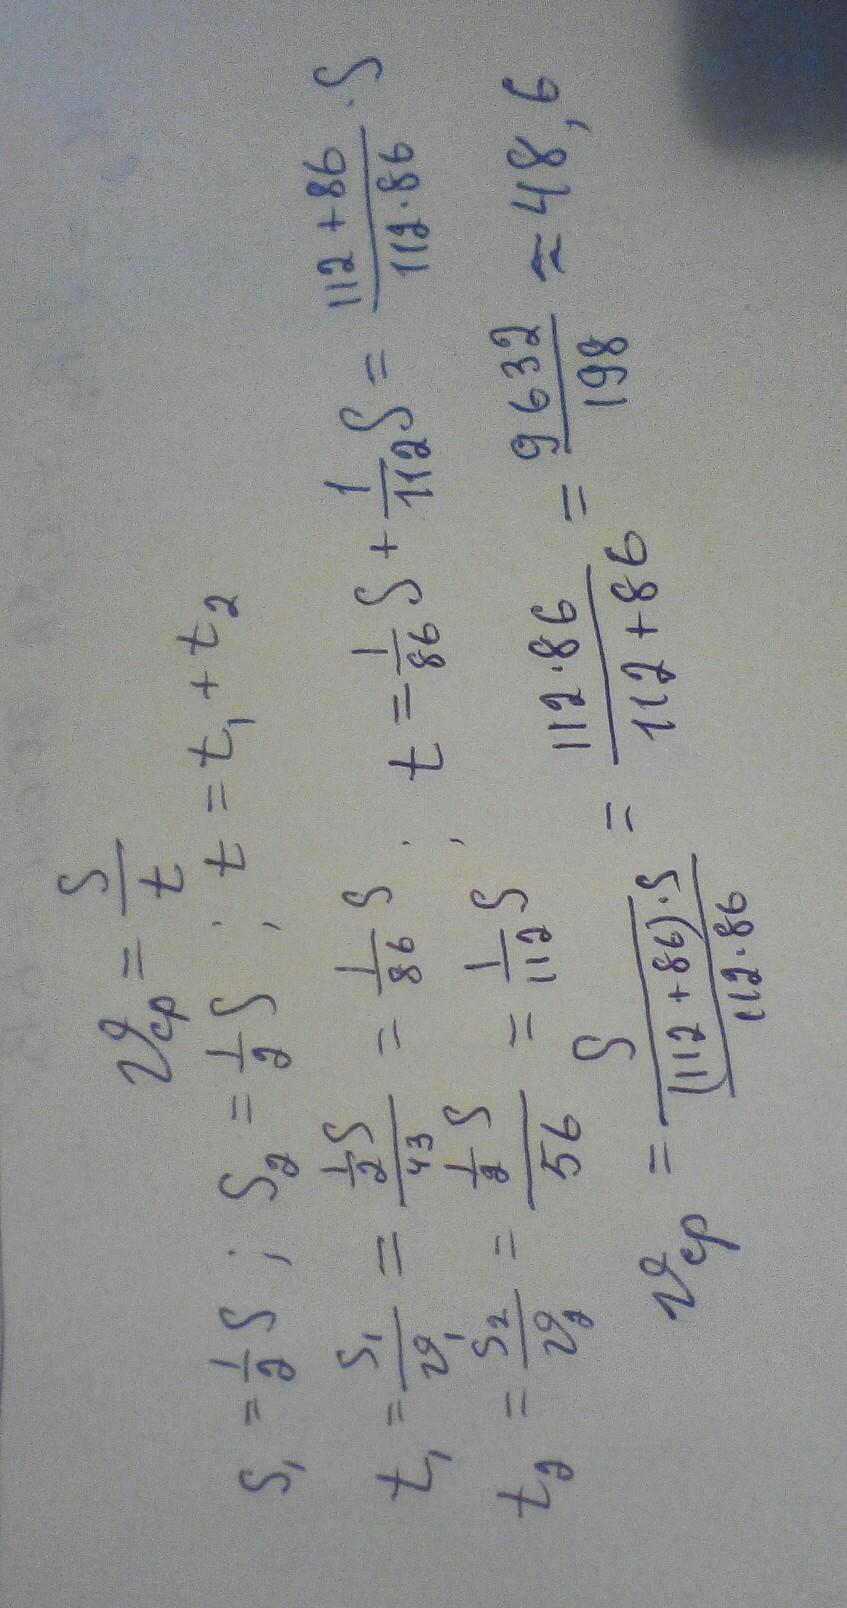 𝑣ср = S/t
S₁ = 1/2 S ; S₂ = 1/2 S ; t = t₁ + t₂
t₁ = S₁/𝑣₁ = (1/2 S)/43 = 1/86 S ; t = 1/86 S + 1/112 S = (112 + 86)/(112 · 86) · S
t₂ = S₂/𝑣₂ = (1/2 S)/56 = 1/112 S ;
𝑣ср = S/((112 + 86) · S/(112 · 86)) = (112 · 86)/(112 + 86) = 9632/198 ≈ 48,6